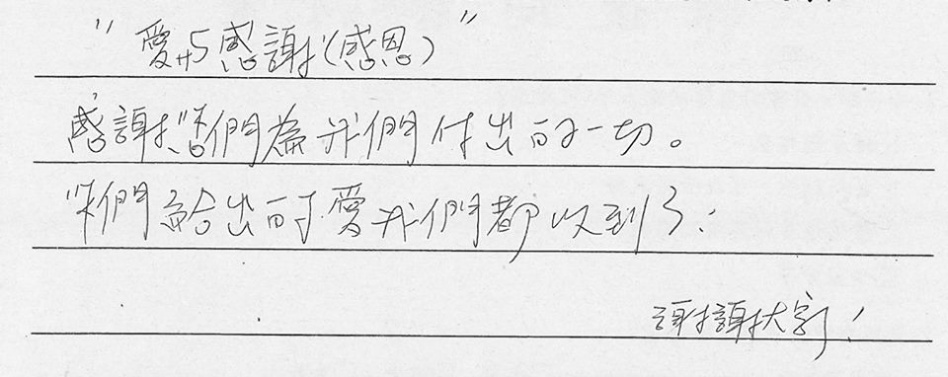 "愛与感謝(感恩)"
感謝您們為我們付出的一切。
你們給出的愛我們都收到了!
謝謝大家!